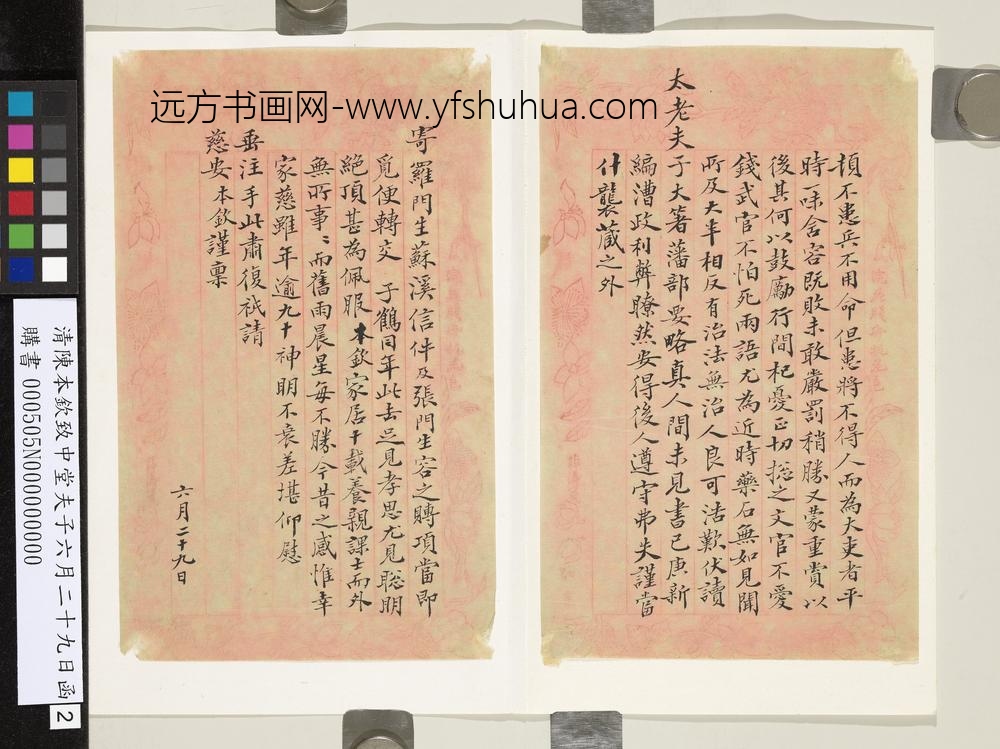 远方书画网-www.yfshuhua.com
頃不患兵不用命但患將不得人而為大吏者平
時一味舍容既敗未敢嚴罰稍勝又蒙重賞以
後其何以鼓勵行間杞憂正切揔之文官不愛
錢武官不怕死兩語尤為近時藥石無如見聞
所及大半相反有治法無治人良可浩歎伏讀
太老夫
子大著藩部要略真人間未見書已庚新
編漕政利弊瞭然安得後人遵守弗失謹當
什襲藏之外
寄羅門生蘇溪信件及張門生容之賻項當即
覓便轉交 子鶴同年此去足見孝思尤見聰明
絕頂甚為佩服 本欽家居十載養親課士而外
無所事〻而舊雨晨星每不勝今昔之感惟幸
家慈雖年逾九十神明不衰差堪仰慰
垂注手此肅復祇請
慈安本欽謹稟
六月二十九日
清陳本欽致中堂夫子六月二十九日函
2
購書 000505N000000000